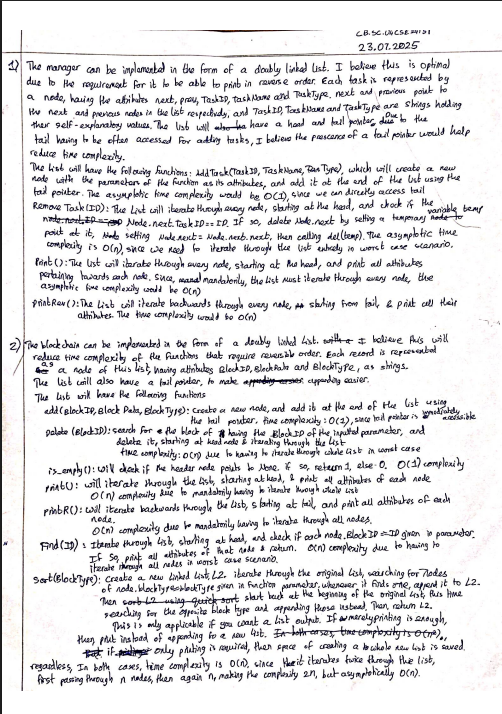 CB.SC.U4CSE24151
23.07.2025
1) The manager can be implemented in the form of a doubly linked list. I believe this is optimal
due to the requirement for it to be able to print in reverse order. Each task is represented by
a node, having the attributes next, prev, TaskID, TaskName and TaskType. next and previous point to
the next and previous nodes in the list respectively, and TaskID, TaskName and TaskType are strings holding
their self-explanatory values. The list will have a head and tail pointer, Due to the
tail having to be often accessed for adding tasks, I believe the prescence of a tail pointer would help
reduce time complexity.
The list will have the following functions: AddTask(TaskID, TaskName, Type), which will create a new
node with the parameters of the function as its attributes, and add it at the end of the list using the
tail pointer. The asymptotic time complexity would be O(1), since we can directly access tail
Remove Task(ID): The list will iterate through every node, starting at the head, and check if the
Node.next.TaskID==ID. If so, delete Node.next by setting a temporary variable temp
point at it, setting Node.next=Node.next.next, then calling del(temp). The asymptotic time
complexity is O(n), since we need to iterate through the list entirely in worst case scenario.
Print(): The list will iterate through every node, starting at the head, and print all attributes
pertaining towards each node. Since, mandatorily, the list must iterate through every node, the
asymptotic time complexity would be O(n)
PrintRev(): The list will iterate backwards through every node, starting from tail, & print all their
attributes. The time complexity would be O(n)
2) The blockchain can be implemented in the form of a doubly linked list. I believe this will
reduce time complexity of the functions that require reversible order. Each record is represented
as a node of this list, having attributes BlockID, BlockData and BlockType, as strings.
The list will also have a tail pointer, to make appending easier.
The list will have the following functions
add(BlockID, Block Data, BlockType): Create a new node, and add it at the end of the list using
the tail pointer. Time complexity: O(1), since tail pointer is immediately accessible.
Delete (BlockID): search for the block of having the BlockID of the inputted parameter, and
delete it, starting at head node & iterating through the list
time complexity: O(n) due to having to iterate through whole list in worst case
is_empty(): Will check if the header node points to None. if so, return 1, else 0. O(1) complexity
print(): will iterate through the list, starting at head, & print all attributes of each node
O(n) complexity due to mandatorily having to iterate through whole list
printR(): Will iterate backwards through the list, starting at tail, and print all attributes of each
node.
O(n) complexity due to mandatorily having to iterate through all nodes.
Find(ID): Iterate through list, starting at head, and check if each node.BlockID==ID given in parameter.
If so, print all attributes of that node & return. O(n) complexity due to having to
iterate through all nodes in worst case scenario.
Sort(BlockType): Create a new linked list, L2. iterate through the original list, searching for nodes
of node.blocktype=blockType given in function parameter. whenever it finds one, append it to L2.
Then start back at the beginning of the original list, this time
searching for the opposite block type and appending those instead. Then, return L2.
This is only applicable if you want a list output. If merely printing is enough,
then print instead of appending to a new list.
if only printing is required, then space of creating a whole new list is saved.
regardless, In both cases, time complexity is O(n), since it iterates twice through the list,
first passing through n nodes, then again n, making the complexity 2n, but asymptotically O(n).